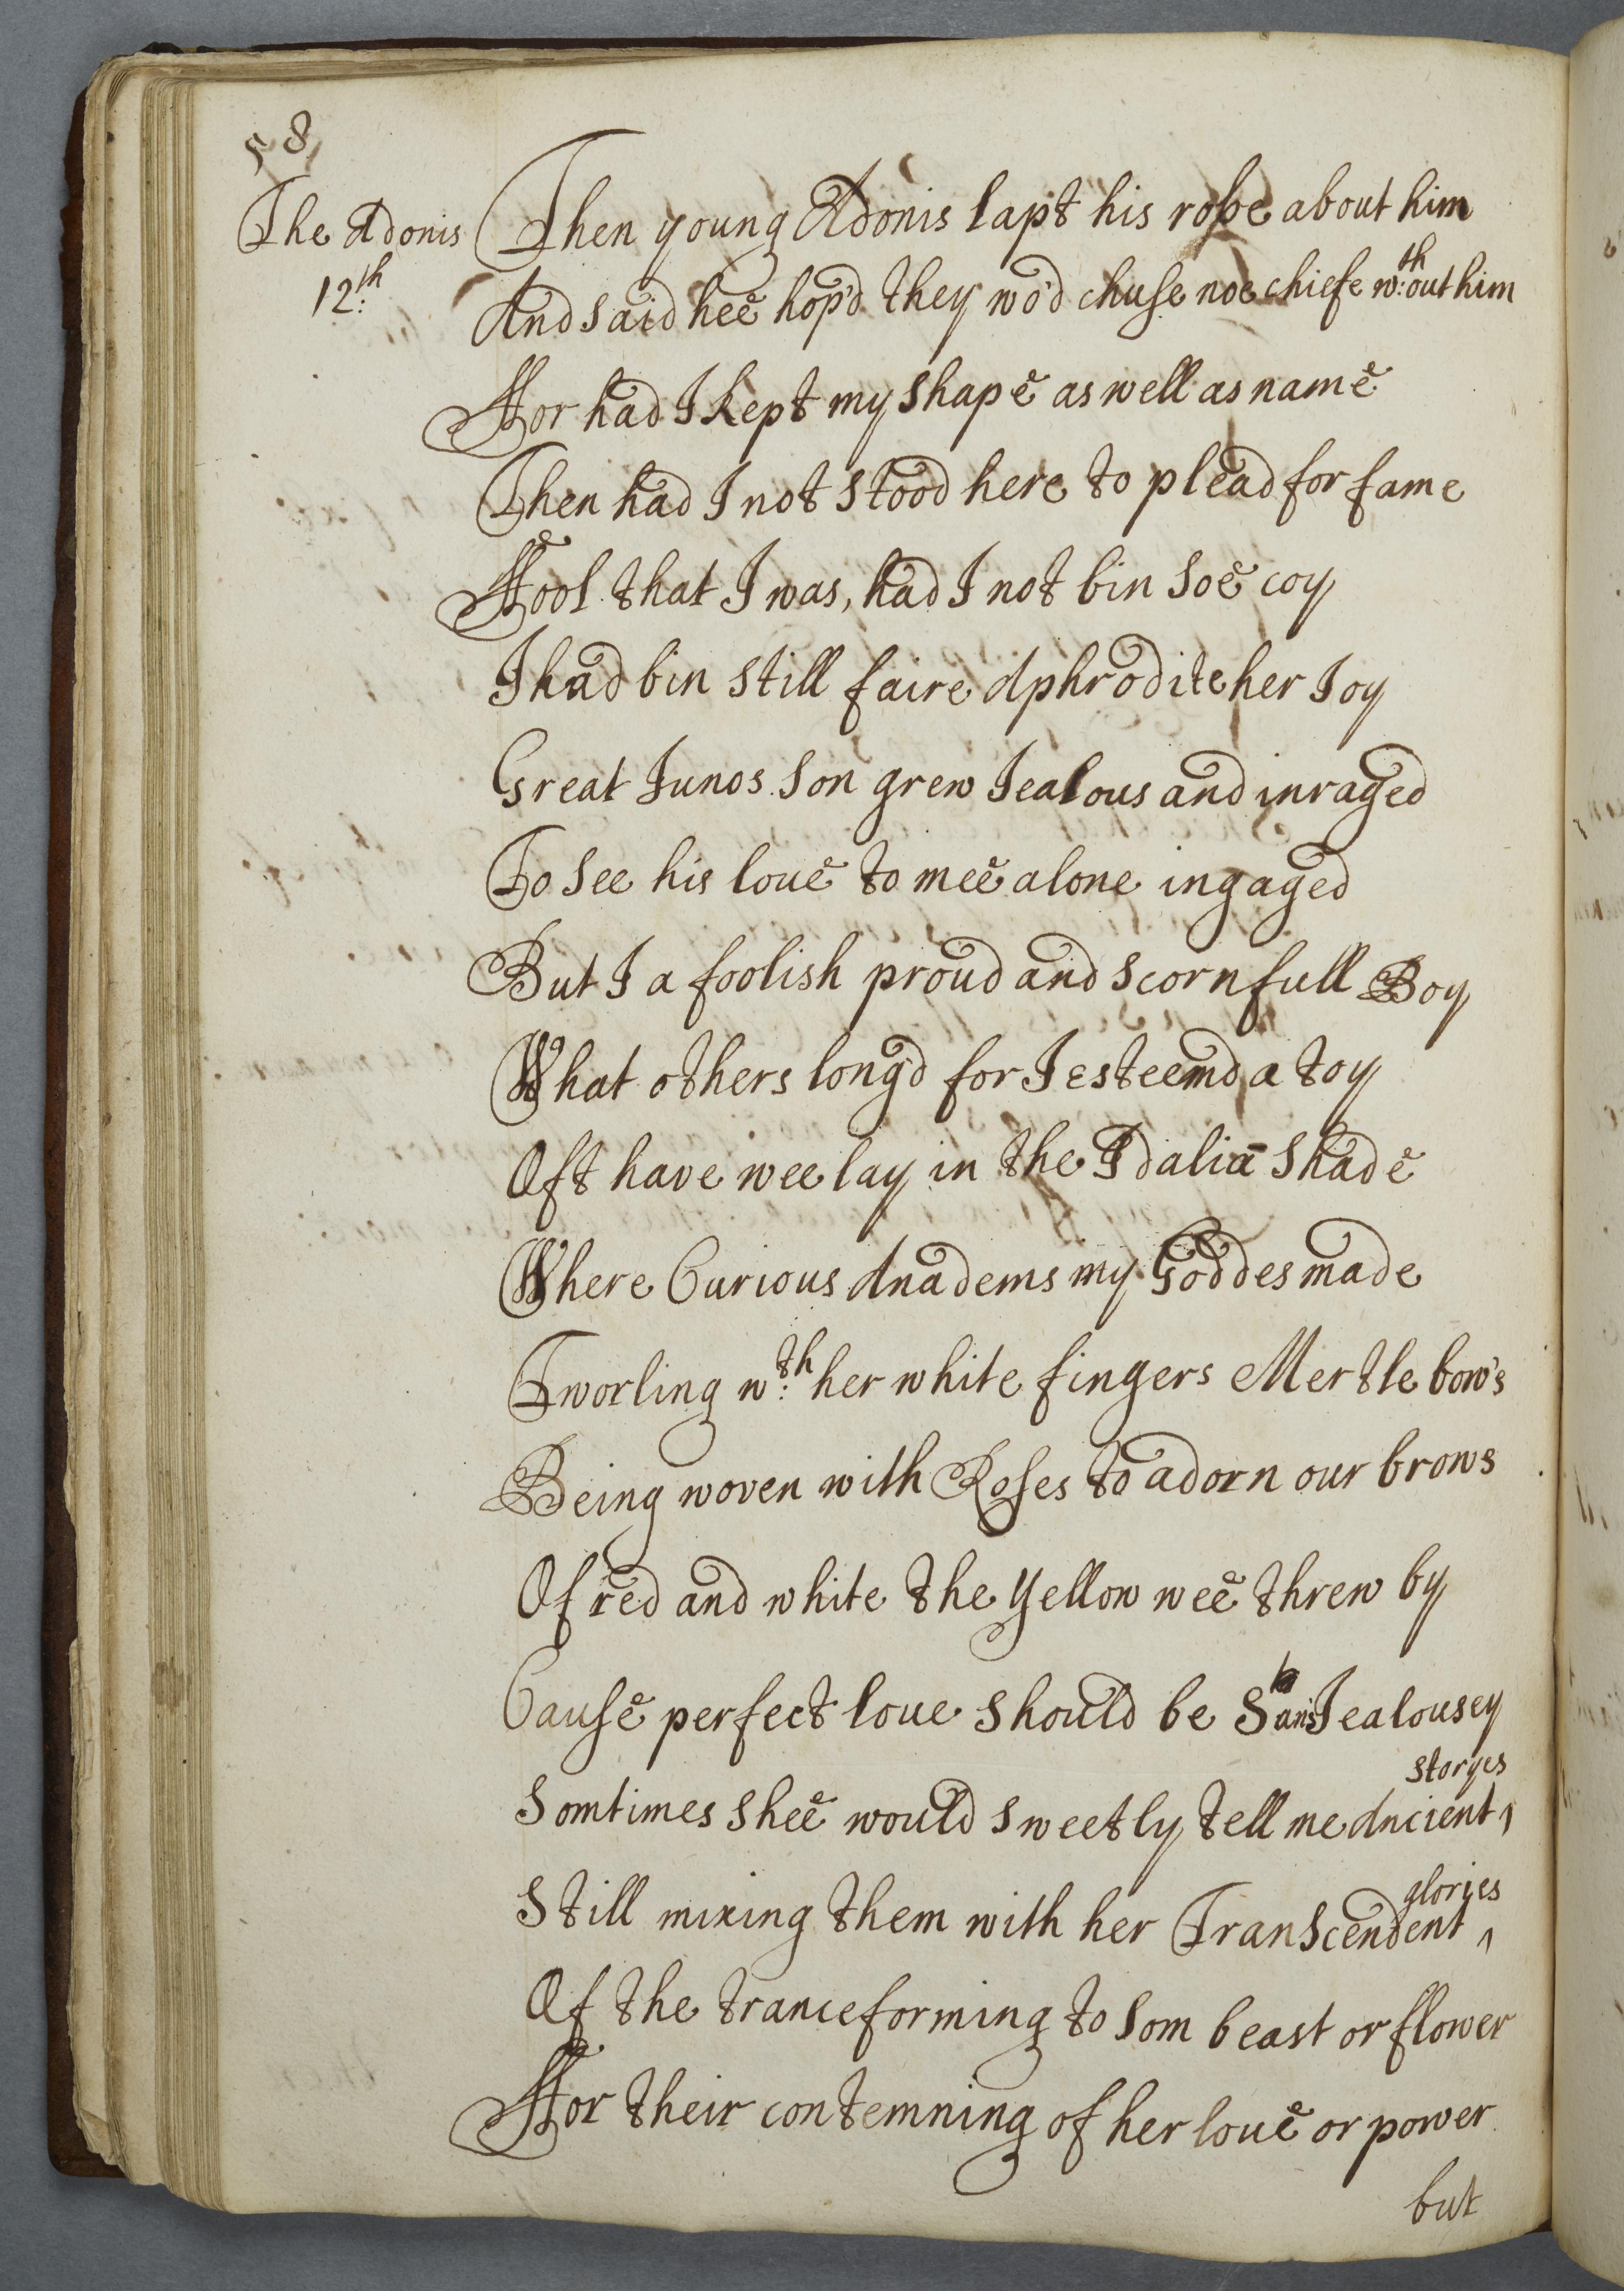 58
The Adonis
12:th
Then young Adonis lapt his robe about him
And said hee hop'd they wo'd chuse noe chiefe w:thout him
For had I kept my shape as well as name
Then had I not stood here to plead for fame
Fool that I was, had I not bin soe coy
I had bin still faire Aphrodite her Joy
Great Junos son grew Jealous and inraged
To see his loue to mee alone ingaged
But I a foolish proud and scornfull Boy
What others long'd for I esteemd a toy
Oft have wee lay in the Idaliā shade
Where Curious Anadems my Goddes made
Tworling w:th her white fingers Mertle bow's
Being woven with Roses to adorn our brows
Of red and white the Yellow wee threw by
Cause perfect loue should be Sans Jealousey
Somtimes shee would sweetly tell me Ancient ^ storyes
Still mixing them with her Transcendent ^ glories
Of the tranceforming to som beast or flower
For their contemning of her loue or power
but